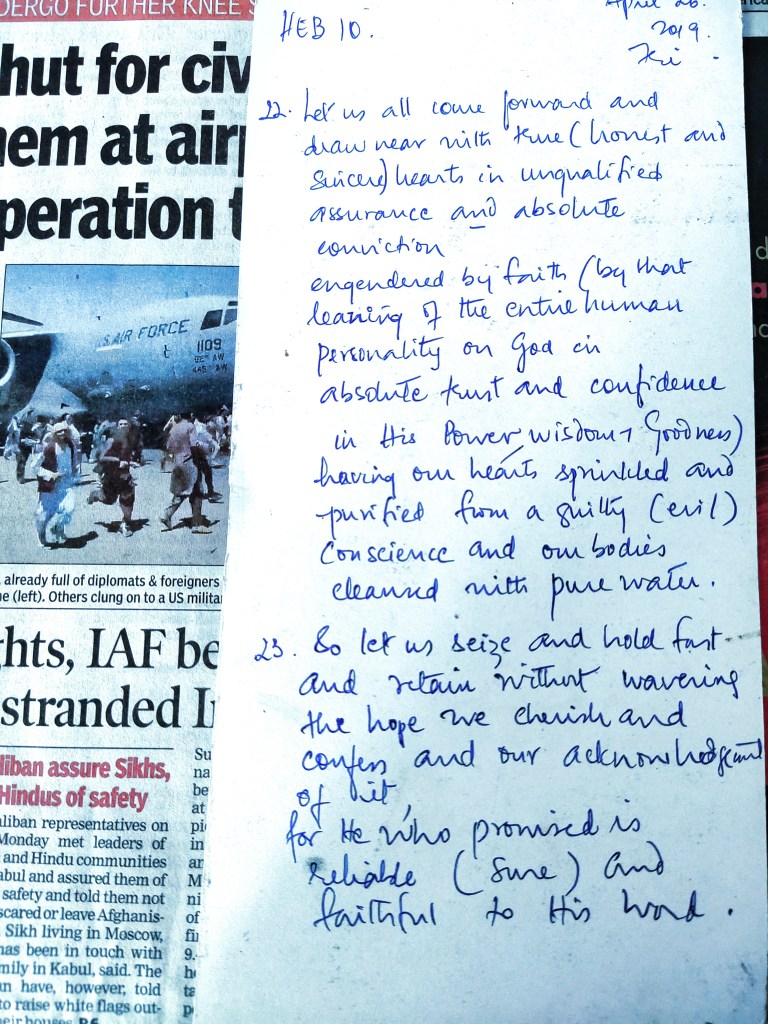 DERGO FURTHER KNEE S
hut for civ
hem at airp
peration t
U.S. AIR FORCE
1109
445 AW
already full of diplomats & foreigners
e (left). Others clung on to a US milita
hts, IAF be
stranded I
liban assure Sikhs,
Hindus of safety
aliban representatives on
Monday met leaders of
and Hindu communities
abul and assured them of
safety and told them not
scared or leave Afghanis-
Sikh living in Moscow,
has been in touch with
mily in Kabul, said. The
an have, however, told
to raise white flags out-
eir houses. P6
Su
na
be
at
pi
in
ar
M
ni
of
fi
9.
he
ta
p
HEB 10.
April 26.
2019.
Fri
22. Let us all come forward and
draw near with true (honest and
sincere) hearts in unqualified
assurance and absolute
conviction
engendered by faith (by that
leaning of the entire human
personality on God in
absolute trust and confidence
in His Power, wisdom + Goodness)
having our hearts sprinkled and
purified from a guilty (evil)
conscience and our bodies
cleansed with pure water.
23. So let us seize and hold fast
and retain without wavering
the hope we cherish and
confess and our acknowledgement
of it,
for He who promised is
reliable (sure) and
faithful to His word.